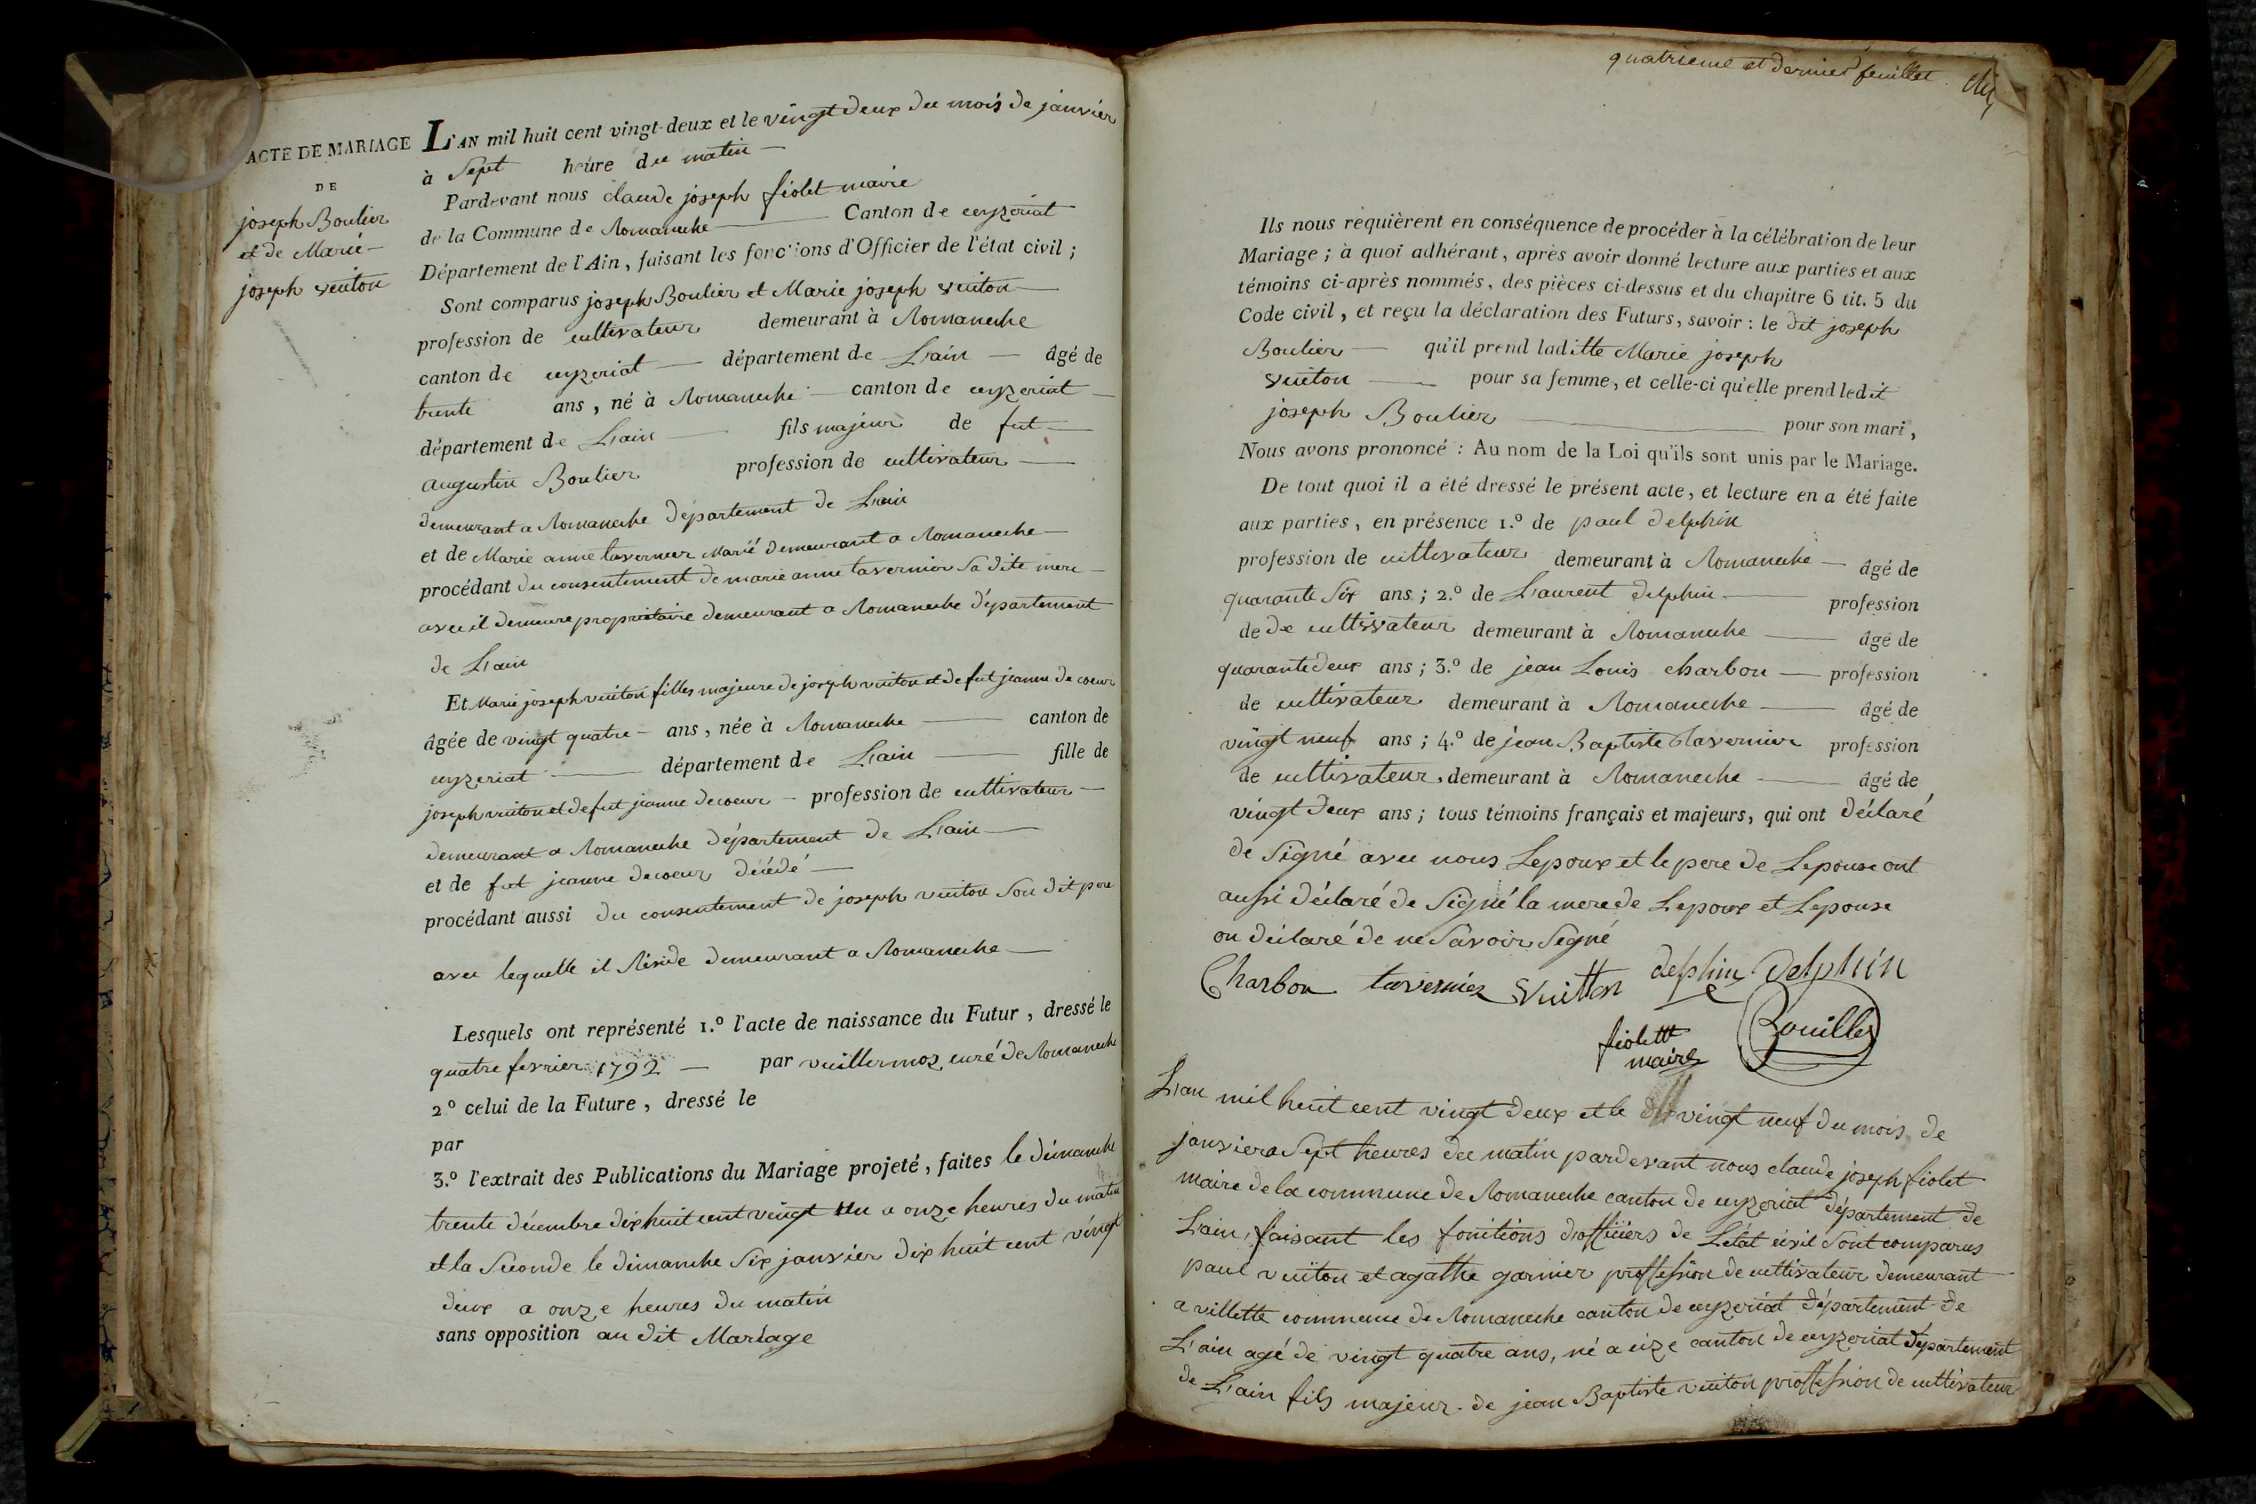 ACTE DE MARIAGE
DE
joseph Boulier
et de Marie
joseph vuiton
L'AN mil huit cent vingt-deux et le vingt deux du mois de janvier
à Sept heure du matin
Pardevant nous claude joseph fiolet maire
de la Commune de Romaneche Canton de ceyzeriat
Département de l'Ain, faisant les fonctions d'Officier de l'état civil;
Sont comparus joseph Boulier et Marie joseph vuiton
profession de cultivateur demeurant à Romaneche
canton de ceyzeriat département de L'ain âgé de
trente ans, né à Romaneche canton de ceyzeriat
département de L'ain fils majeur de fut
augustin Boulier profession de cultivateur
demeurant a Romaneche département de L'ain
et de Marie anne taverneer Marié demeurant a Romaneche
procédant du consentement de marie anne tavernier Sa dite mere
avec il demeure propriétaire demeurant a Romaneche département
de L'ain
Et Marie joseph vuiton filles majeure de joseph vuiton et de fut jeanne de coeur
âgée de vingt quatre ans, née à Romaneche canton de
ceyzeriat département de L'ain fille de
joseph vuiton et de fut jeanne decoeur profession de cultivateur
demeurant a Romaneche département de L'ain
et de fut jeanne decoeur décédé
procédant aussi du consentement de joseph vuiton Son dit pere
avec lequelle il Réside demeurant a Romaneche
Lesquels ont représenté 1.º l'acte de naissance du Futur, dressé le
quatre fevrier 1792 par vuillermoz curé de Romaneche
2º celui de la Future, dressé le
par
3.º l'extrait des Publications du Mariage projeté, faites le dimanche
trente décembre dix huit cent vingt Un a onze heures du matin
et la Seconde le dimanche Six janvier dix huit cent vingt
deux a onze heures du matin
sans opposition au dit Mariage
quatrieme et dernier feuillet
Ils nous requièrent en conséquence de procéder à la célébration de leur
Mariage; à quoi adhérant, après avoir donné lecture aux parties et aux
témoins ci-après nommés, des pièces ci-dessus et du chapitre 6 tit. 5 du
Code civil, et reçu la déclaration des Futurs, savoir: le dit joseph
Boulier qu'il prend laditte Marie joseph
vuiton pour sa femme, et celle-ci qu'elle prend ledit
joseph Boulier pour son mari,
Nous avons prononcé: Au nom de la Loi qu'ils sont unis par le Mariage.
De tout quoi il a été dressé le présent acte, et lecture en a été faite
aux parties, en présence 1.º de paul delphin
profession de cultivateur demeurant à Romaneche âgé de
quarante Six ans; 2.º de Laurent delphin profession
de de cultivateur demeurant à Romaneche âgé de
quarante deux ans; 3.º de jean Louis charbon profession
de cultivateur demeurant à Romaneche âgé de
vingt neuf ans; 4.º de jean Baptiste tavernier profession
de cultivateur, demeurant à Romaneche âgé de
vingt deux ans; tous témoins français et majeurs, qui ont déclaré
de Signé avec nous Lepoux et le pere de Lepouse ont
aussi déclaré de Signé la mere de Lepoux et Lepouse
on déclaré de ne Savoir Signé
Charbon tavernier vuitton delphin delphin
fiolett Bouillet
maire
L'an mil huit cent vingt deux et le vingt neuf du mois de
janvier a Sept heures du matin pardevant nous claude joseph fiolet
maire de la commune de Romaneche canton de ceyzeriat département de
L'ain, faisant les fonctions d'officiers de L'état civil Sont comparus
paul vuiton et agathe garnier proffession de cultivateur demeurant
a villette commune de Romaneche canton de ceyzeriat département de
L'ain agé de vingt quatre ans, né a cize canton de ceyzeriat département
de L'ain fils majeur de jean Baptiste vuiton proffession de cultivateur